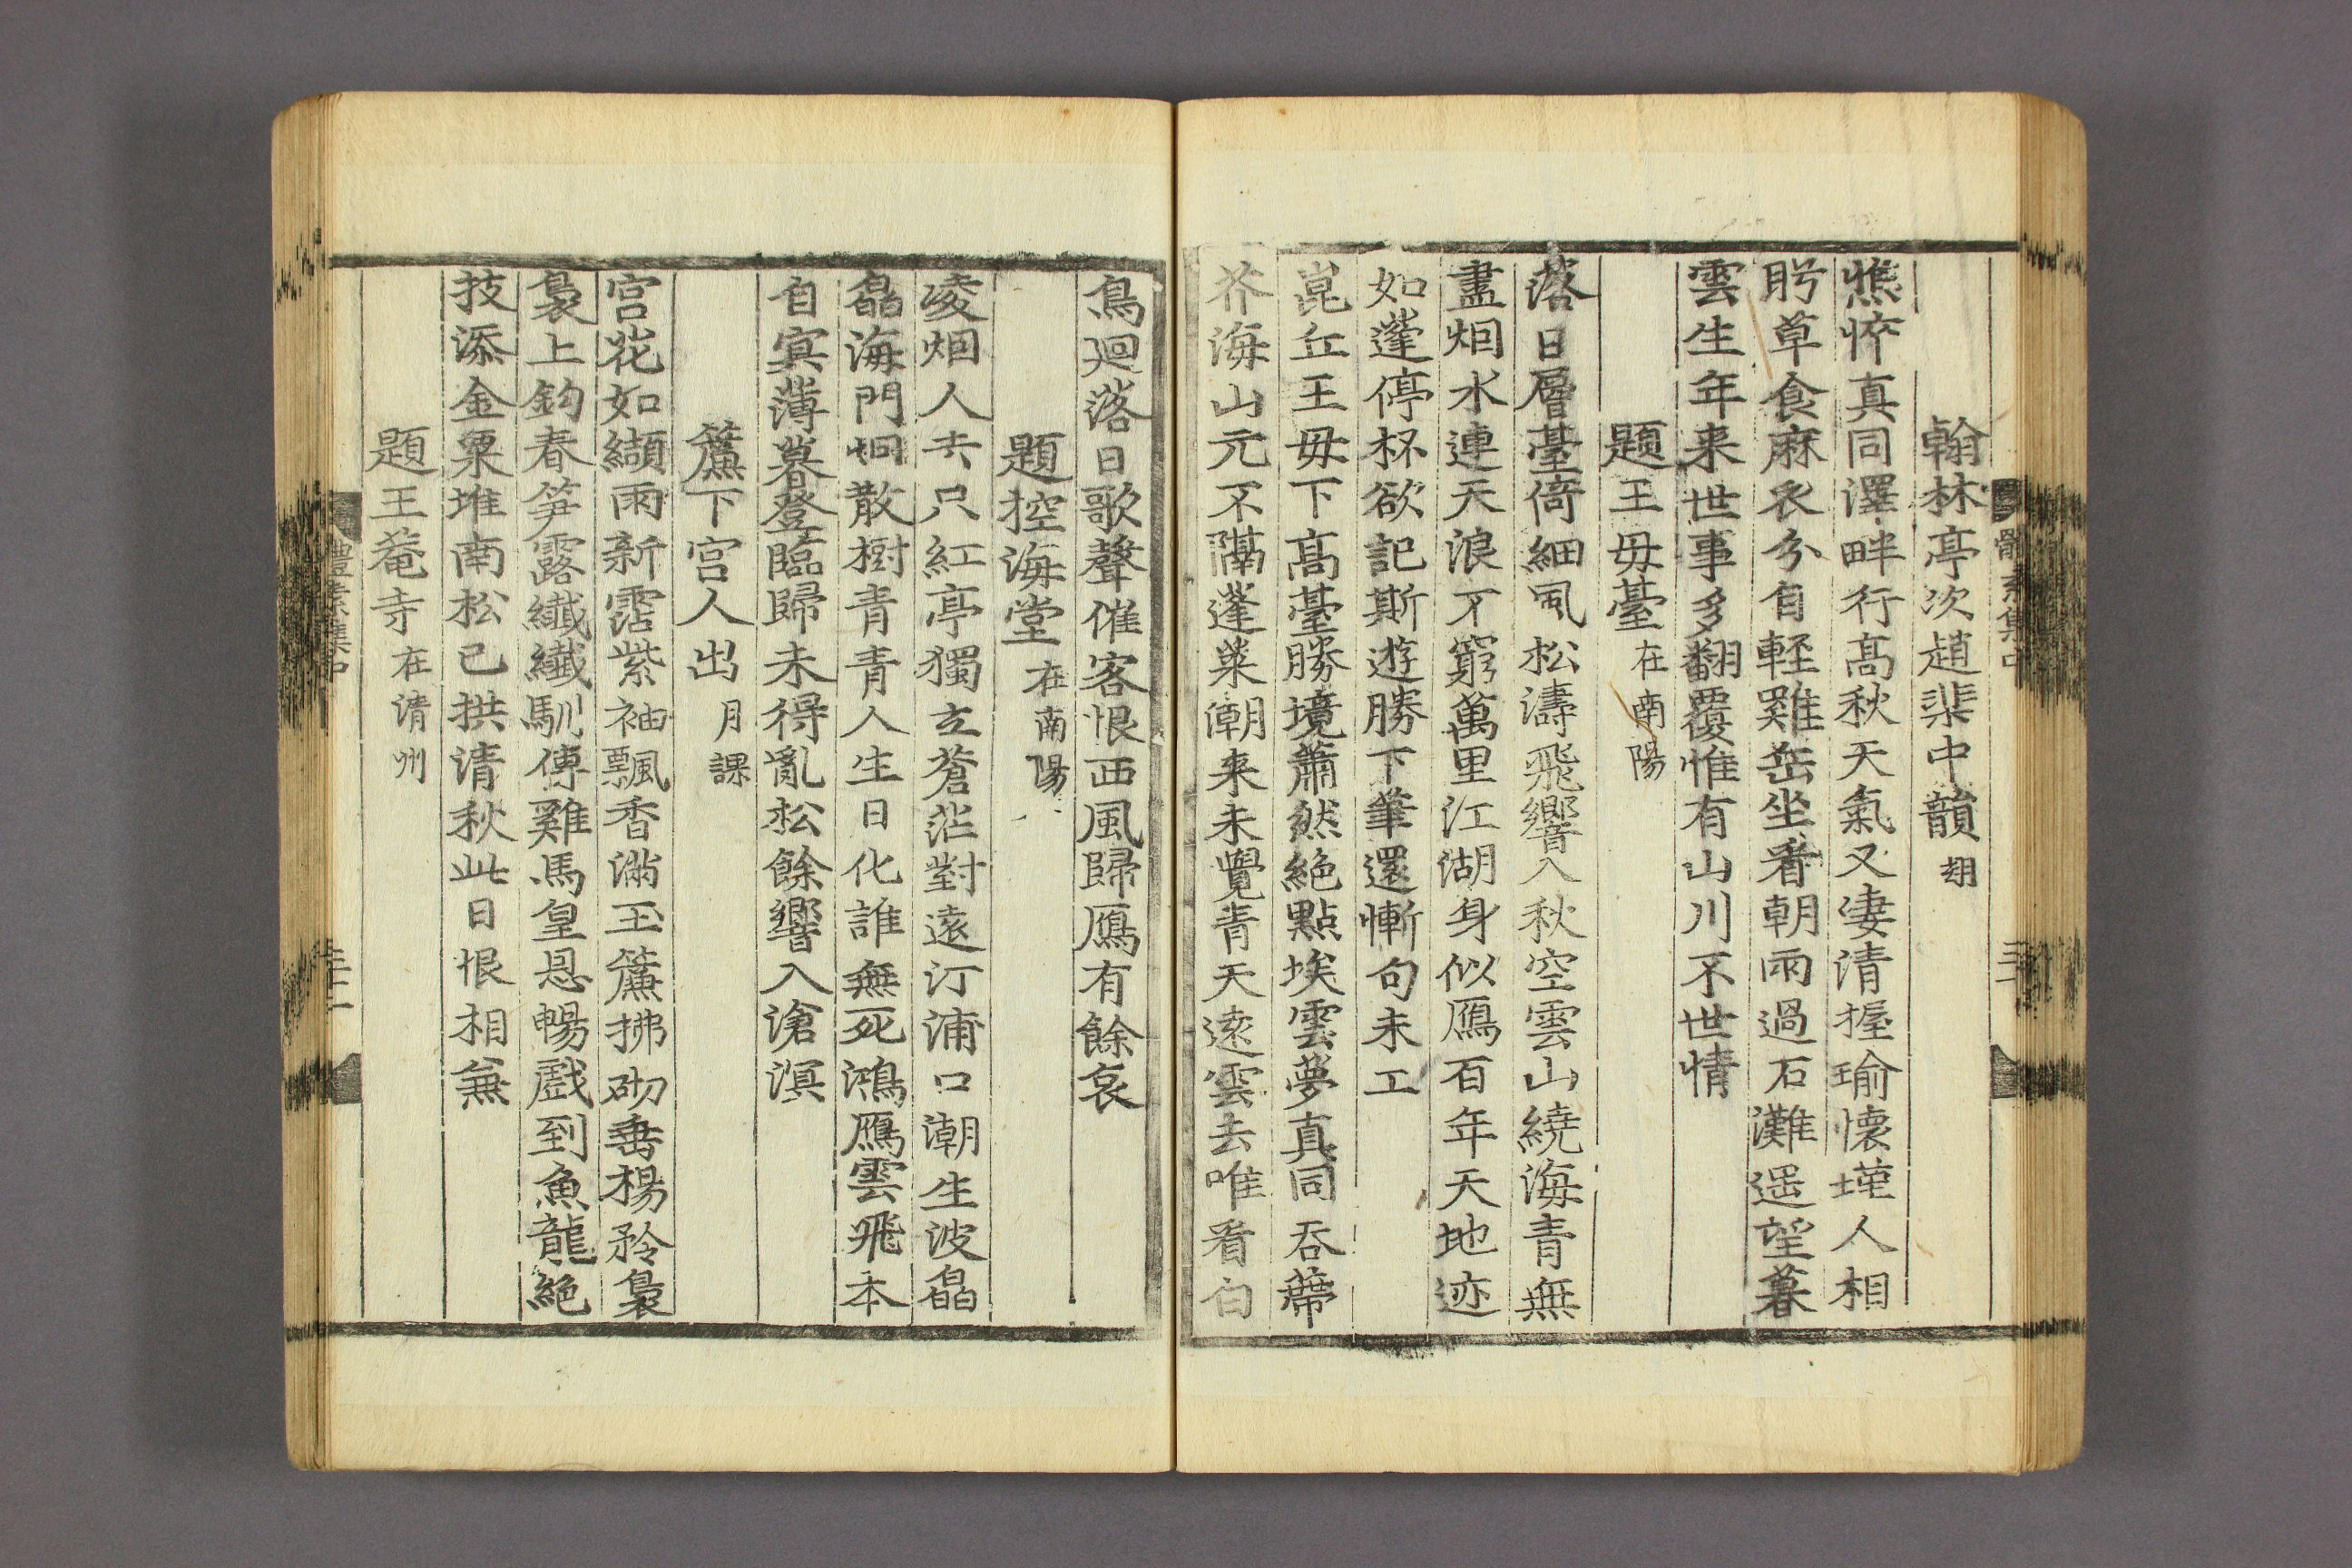 翰林亭次趙棐中韻 翊
憔悴真同澤畔行高秋天氣又凄清握瑜懷瑾人相
盻草食麻衣分自輕雞岳坐看朝雨過石灘遥望暮
雲生年来世事多翻覆惟有山川不世情
題王母臺 在南陽
落日層臺倚細風松濤飛響入秋空雲山繞海青無
盡烟水連天浪不窮萬里江湖身似鴈百年天地迹
如蓬停杯欲記斯遊勝下筆還慚句未工
崑丘王母下高臺勝境蕭然絶點埃雲夢真同吞蔕
芥海山元不隔蓬萊潮来未覺青天遠雲去唯看白
鳥廻落日歌聲催客恨西風歸鴈有餘哀
題控海堂 在南陽
凌烟人去只紅亭獨立蒼茫對遠汀浦口潮生波磊
磊海門烟散樹青青人生日化誰無死鴻鴈雲飛本
自冥薄暮登臨歸未得亂松餘響入滄溟
簾下宫人出 月課
宫花如纈雨新霑紫袖飄香滿玉簾拂砌垂楊矜裊
裊上鈎春笋露纖纖馴傳雞馬皇恩暢戲到魚龍絶
技添金粟堆南松已拱清秋此日恨相兼
題王菴寺 在清州
體素集中
體素集中